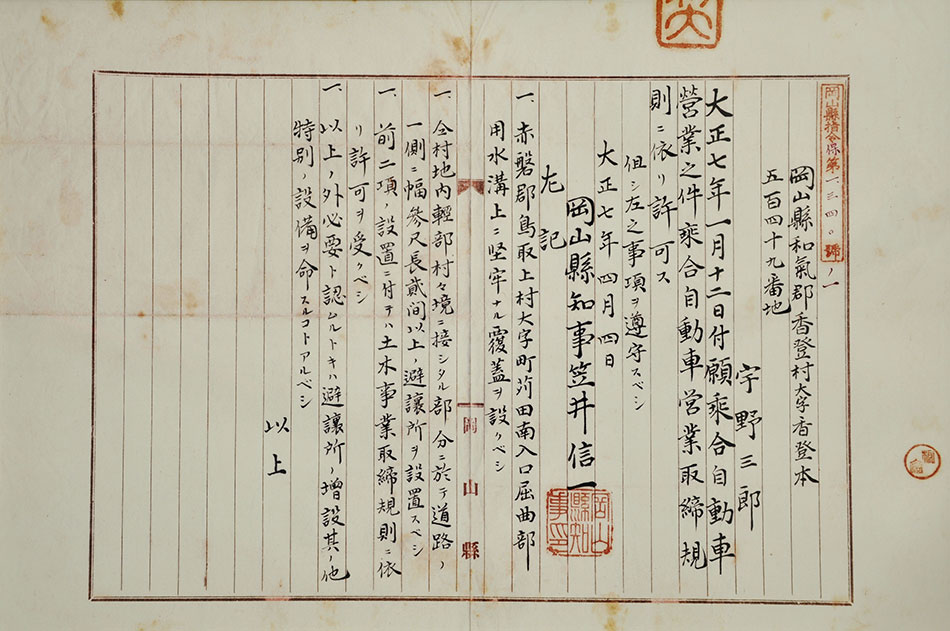 岡山縣指令保第一三四〇號ノ一
岡山縣和氣郡香登村大字香登本
五百四十九番地
宇野三郎
大正七年一月十二日付願乘合自動車
營業之件乘合自動車営業取締規
則ニ依リ許可ス
但シ左之事項ヲ遵守スベシ
大正七年四月四日
岡山縣知事笠井信一
岡山縣知事印
左記
一、赤磐郡鳥取上村大字町苅田南入口屈曲部
用水溝上ニ堅牢ナル覆蓋ヲ設クベシ
一、仝村地内輕部村々境ニ接シタル部分ニ於テ道路ノ
一側ニ幅參尺長貳間以上ノ避讓所ヲ設置スベシ
一、前二項ノ設置ニ付テハ土木事業取締規則ニ依
リ許可ヲ受クベシ
一、以上ノ外必要ト認ムルトキハ避讓所ノ增設其ノ他
特別ノ設備ヲ命スルコトアルベシ
以上
岡山縣